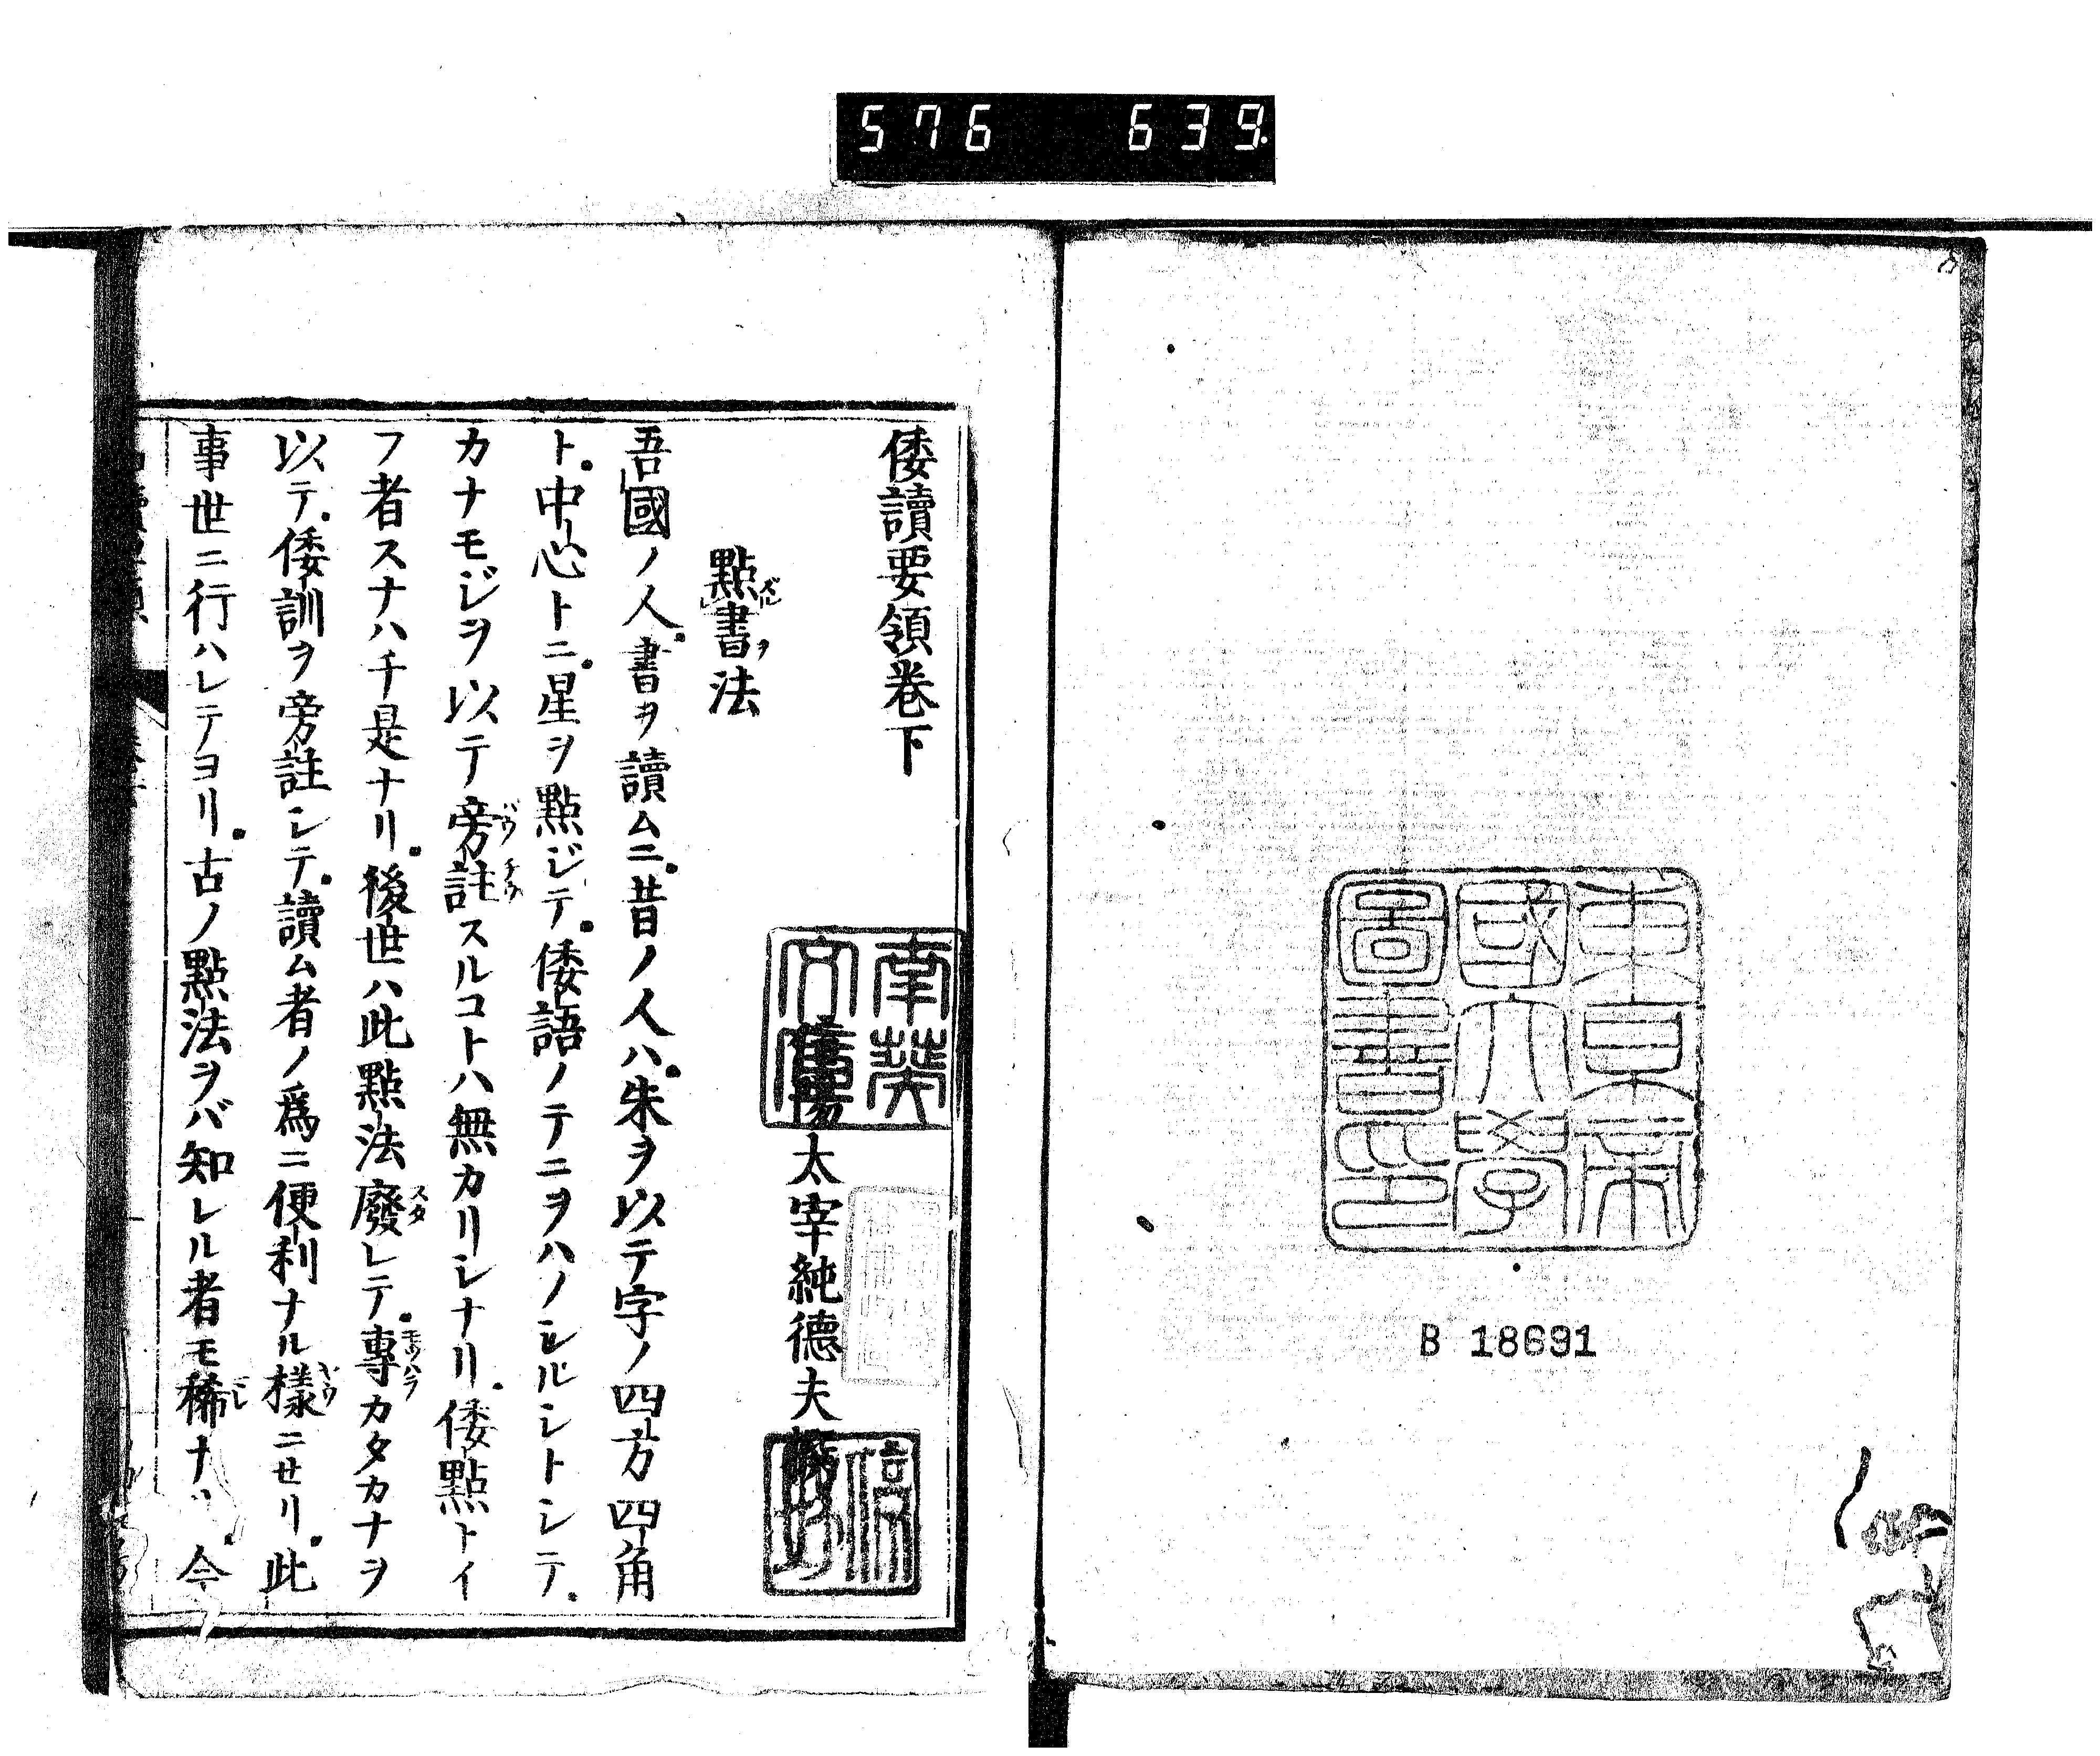 576 639.
東京帝
國大學
圖書印
B 18691
倭讀要領卷下
南葵
文庫
信陽太宰純德夫撰
點書法
ズル ヲ レ
吾國ノ人書ヲ讀ムニ昔ノ人ハ朱ヲ以テ字ノ四方四角
ト中心トニ星ヲ點ジテ倭語ノテニヲハノシルシトシテ
カナモジヲ以テ旁註スルコトハ無カリシナリ倭點トイ
バウ チウ
フ者スナハチ是ナリ後世ハ此點法廢レテ專カタカナヲ
スタ モツハラ
以テ倭訓ヲ旁註シテ讀ム者ノ爲ニ便利ナル樣ニセリ此
ヤウ
事世ニ行ハレテヨリ古ノ點法ヲバ知レル者モ稀ナ 今